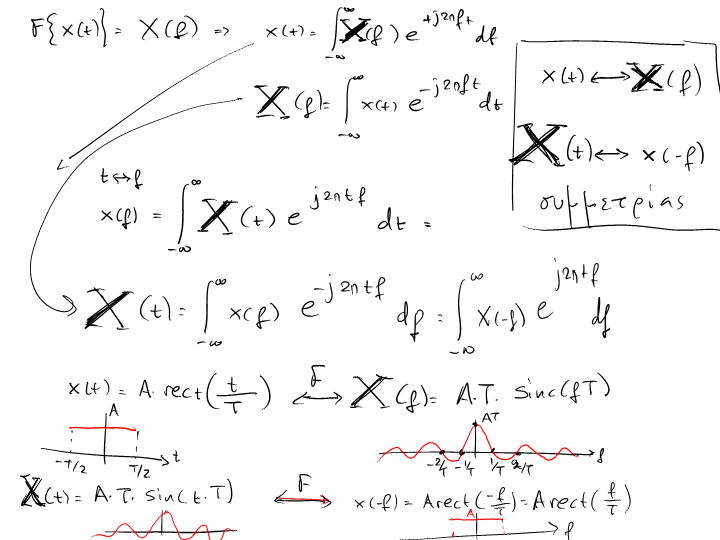 F{x(t)} = X(f) => x(t) = ∫_{-∞}^{∞} X(f) e^{+j2πft} df
X(f) = ∫_{-∞}^{∞} x(t) e^{-j2πft} dt
x(t) ↔ X(f)
X(t) ↔ x(-f)
συμμετρίας
t↔f
x(f) = ∫_{-∞}^{∞} X(t) e^{j2πtf} dt =
X(t) = ∫_{-∞}^{∞} x(f) e^{-j2πtf} df = ∫_{-∞}^{∞} x(-f) e^{j2πtf} df
x(t) = A. rect(t/T) ↔F X(f) = A.T. sinc(fT)
A
-T/2 T/2 t
AT
-2/T -1/T 1/T 2/T f
X(t) = A.T. sin(t.T) ↔F x(-f) = A rect(-f/T) = A rect(f/T)
A
f